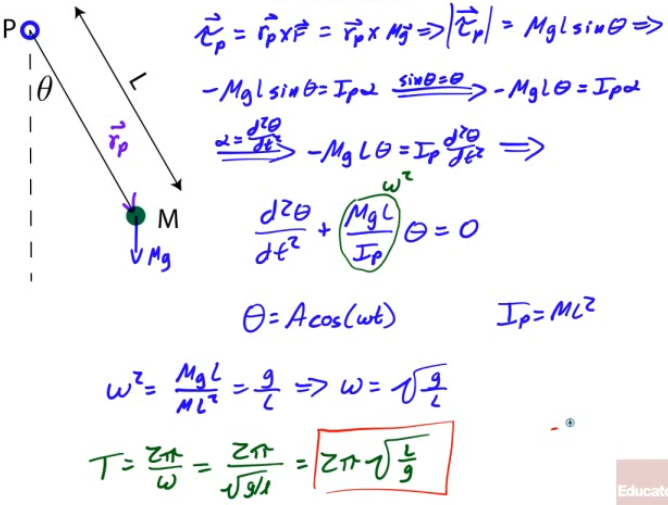 P
θ
L
r⃗p
M
Mg
τ⃗p = r⃗p × F⃗ = r⃗p × Mg⃗ ⇒ |τ⃗p| = MgL sinθ ⇒
-MgL sinθ = Ipα sinθ=θ ⟹ -MgLθ = Ipα
α = d²θ/dt² ⟹ -MgLθ = Ip d²θ/dt² ⟹
ω²
d²θ/dt² + (MgL/Ip) θ = 0
θ = A cos(ωt) Ip = ML²
ω² = MgL/ML² = g/L ⇒ ω = √(g/L)
T = 2π/ω = 2π/√(g/L) = 2π√(L/g)
Educato